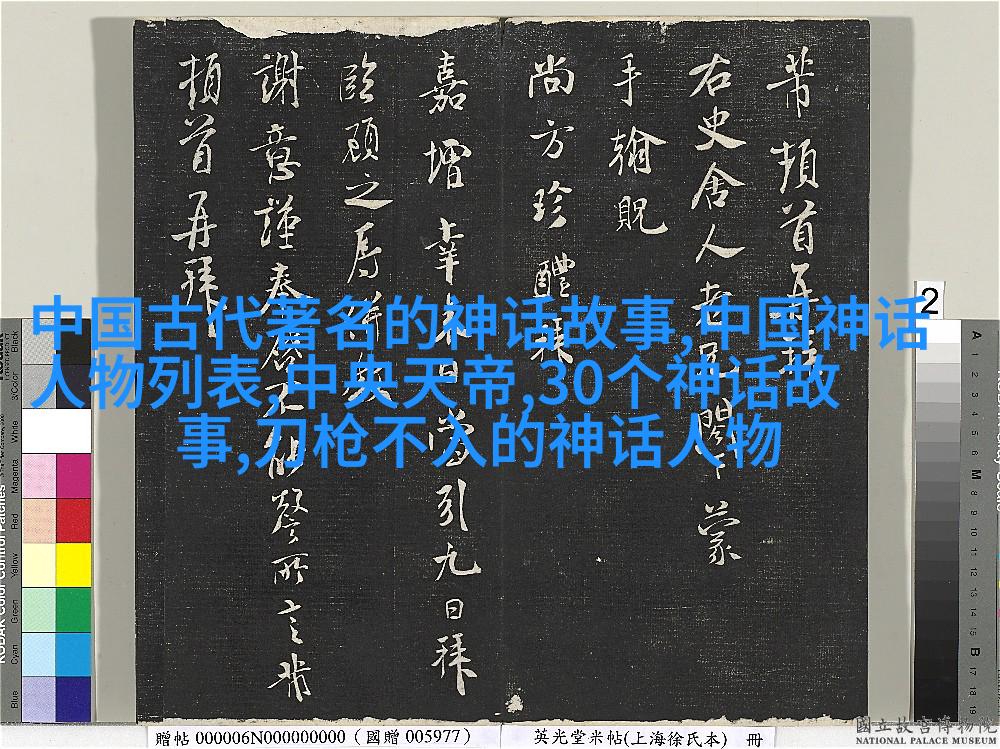 芾頓首再拜
右史舍人
閣下蒙
手翰貺
尚方珍醴拜
嘉增幸
日當引九日拜
臨顧之辱
謝意謹奉
所言芾
頓首再拜
中国古代著名的神话故事,中国神话
人物列表,中央天帝,30个神话故
事,刀枪不入的神话人物
2
KODAK Color Control Patches
Blue Cyan Green Yellow Red Magenta White 3/Color Black
A 1 2 3 4 5 6 M 8 9 10 11 12 13 14 15 B 17 18 19
贈帖 000006N000000000 (國贈 005977)
英光堂米帖(上海徐氏本) 冊
國立故宮博物院
NATIONAL PALACE MUSEUM